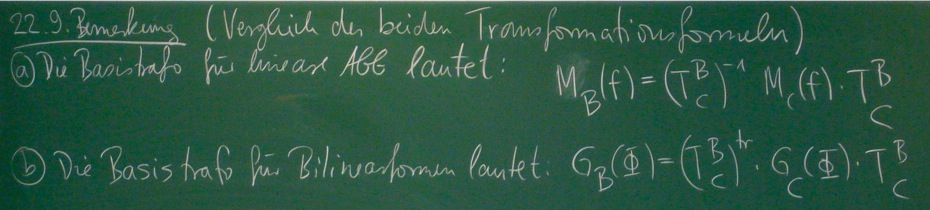 22.9. Bemerkung (Vergleich der beiden Transformationsformeln)
ⓐ Die Basistrafo für lineare Abb lautet: M_B(f) = (T^B_C)^{-1} M_C(f) · T^B_C
ⓑ Die Basistrafo für Bilinearformen lautet: G_B(Φ) = (T^B_C)^{tr} · G_C(Φ) · T^B_C